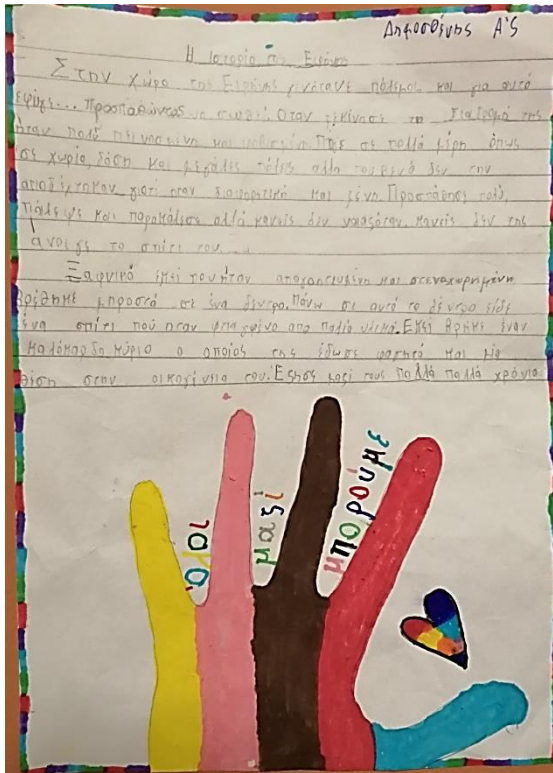 Δημοσθένης Α'5
Η Ιστορία της Ειρήνης
Στην χώρα της Ειρήνης γινότανε πόλεμος και για αυτό
έφυγε... Προσπαθώντας να σωθεί. Όταν ξεκίνησε τη διαδρομή της
ήταν πολύ πεινασμένη και φοβισμένη. Πήγε σε πολλά μέρη όπως
σε χωριά, δάση και μεγάλες πόλεις αλλά κανένα δεν την
γιατί ήταν διαφορετική και ξένη. Προσπάθησε πολύ,
πάλεψε και παρακάλεσε αλλά κανείς δεν νοιαζόταν. Κανείς δεν της
άνοιγε το σπίτι του...
Ξαφνικά εκεί που ήταν απογοητευμένη και στεναχωρημένη
βρέθηκε μπροστά σε ένα δέντρο. Πάνω σε αυτό το δέντρο είδε
ένα σπίτι πού ήταν φτιαγμένο από παλιά υλικά. Εκεί βρήκε έναν
καλόκαρδο κύριο ο οποίος της έδωσε φαγητό και μία
θέση στην οικογένεια του. Έζησε μαζί τους πολλά πολλά χρόνια
όλοι
μαζί
μπορούμε